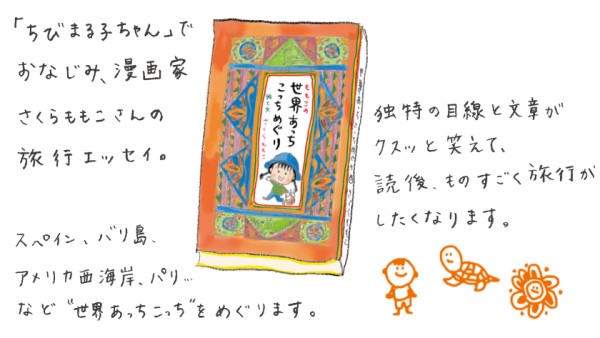 「ちびまる子ちゃん」で
おなじみ、漫画家
さくらももこさんの
旅行エッセイ。
スペイン、バリ島、
アメリカ西海岸、パリ…
など〝世界あっちこっち〟をめぐります。
ももこの
世界あっち
こっちめぐり
さくらももこ
独特の目線と文章が
クスッと笑えて、
読後、ものすごく旅行が
したくなります。